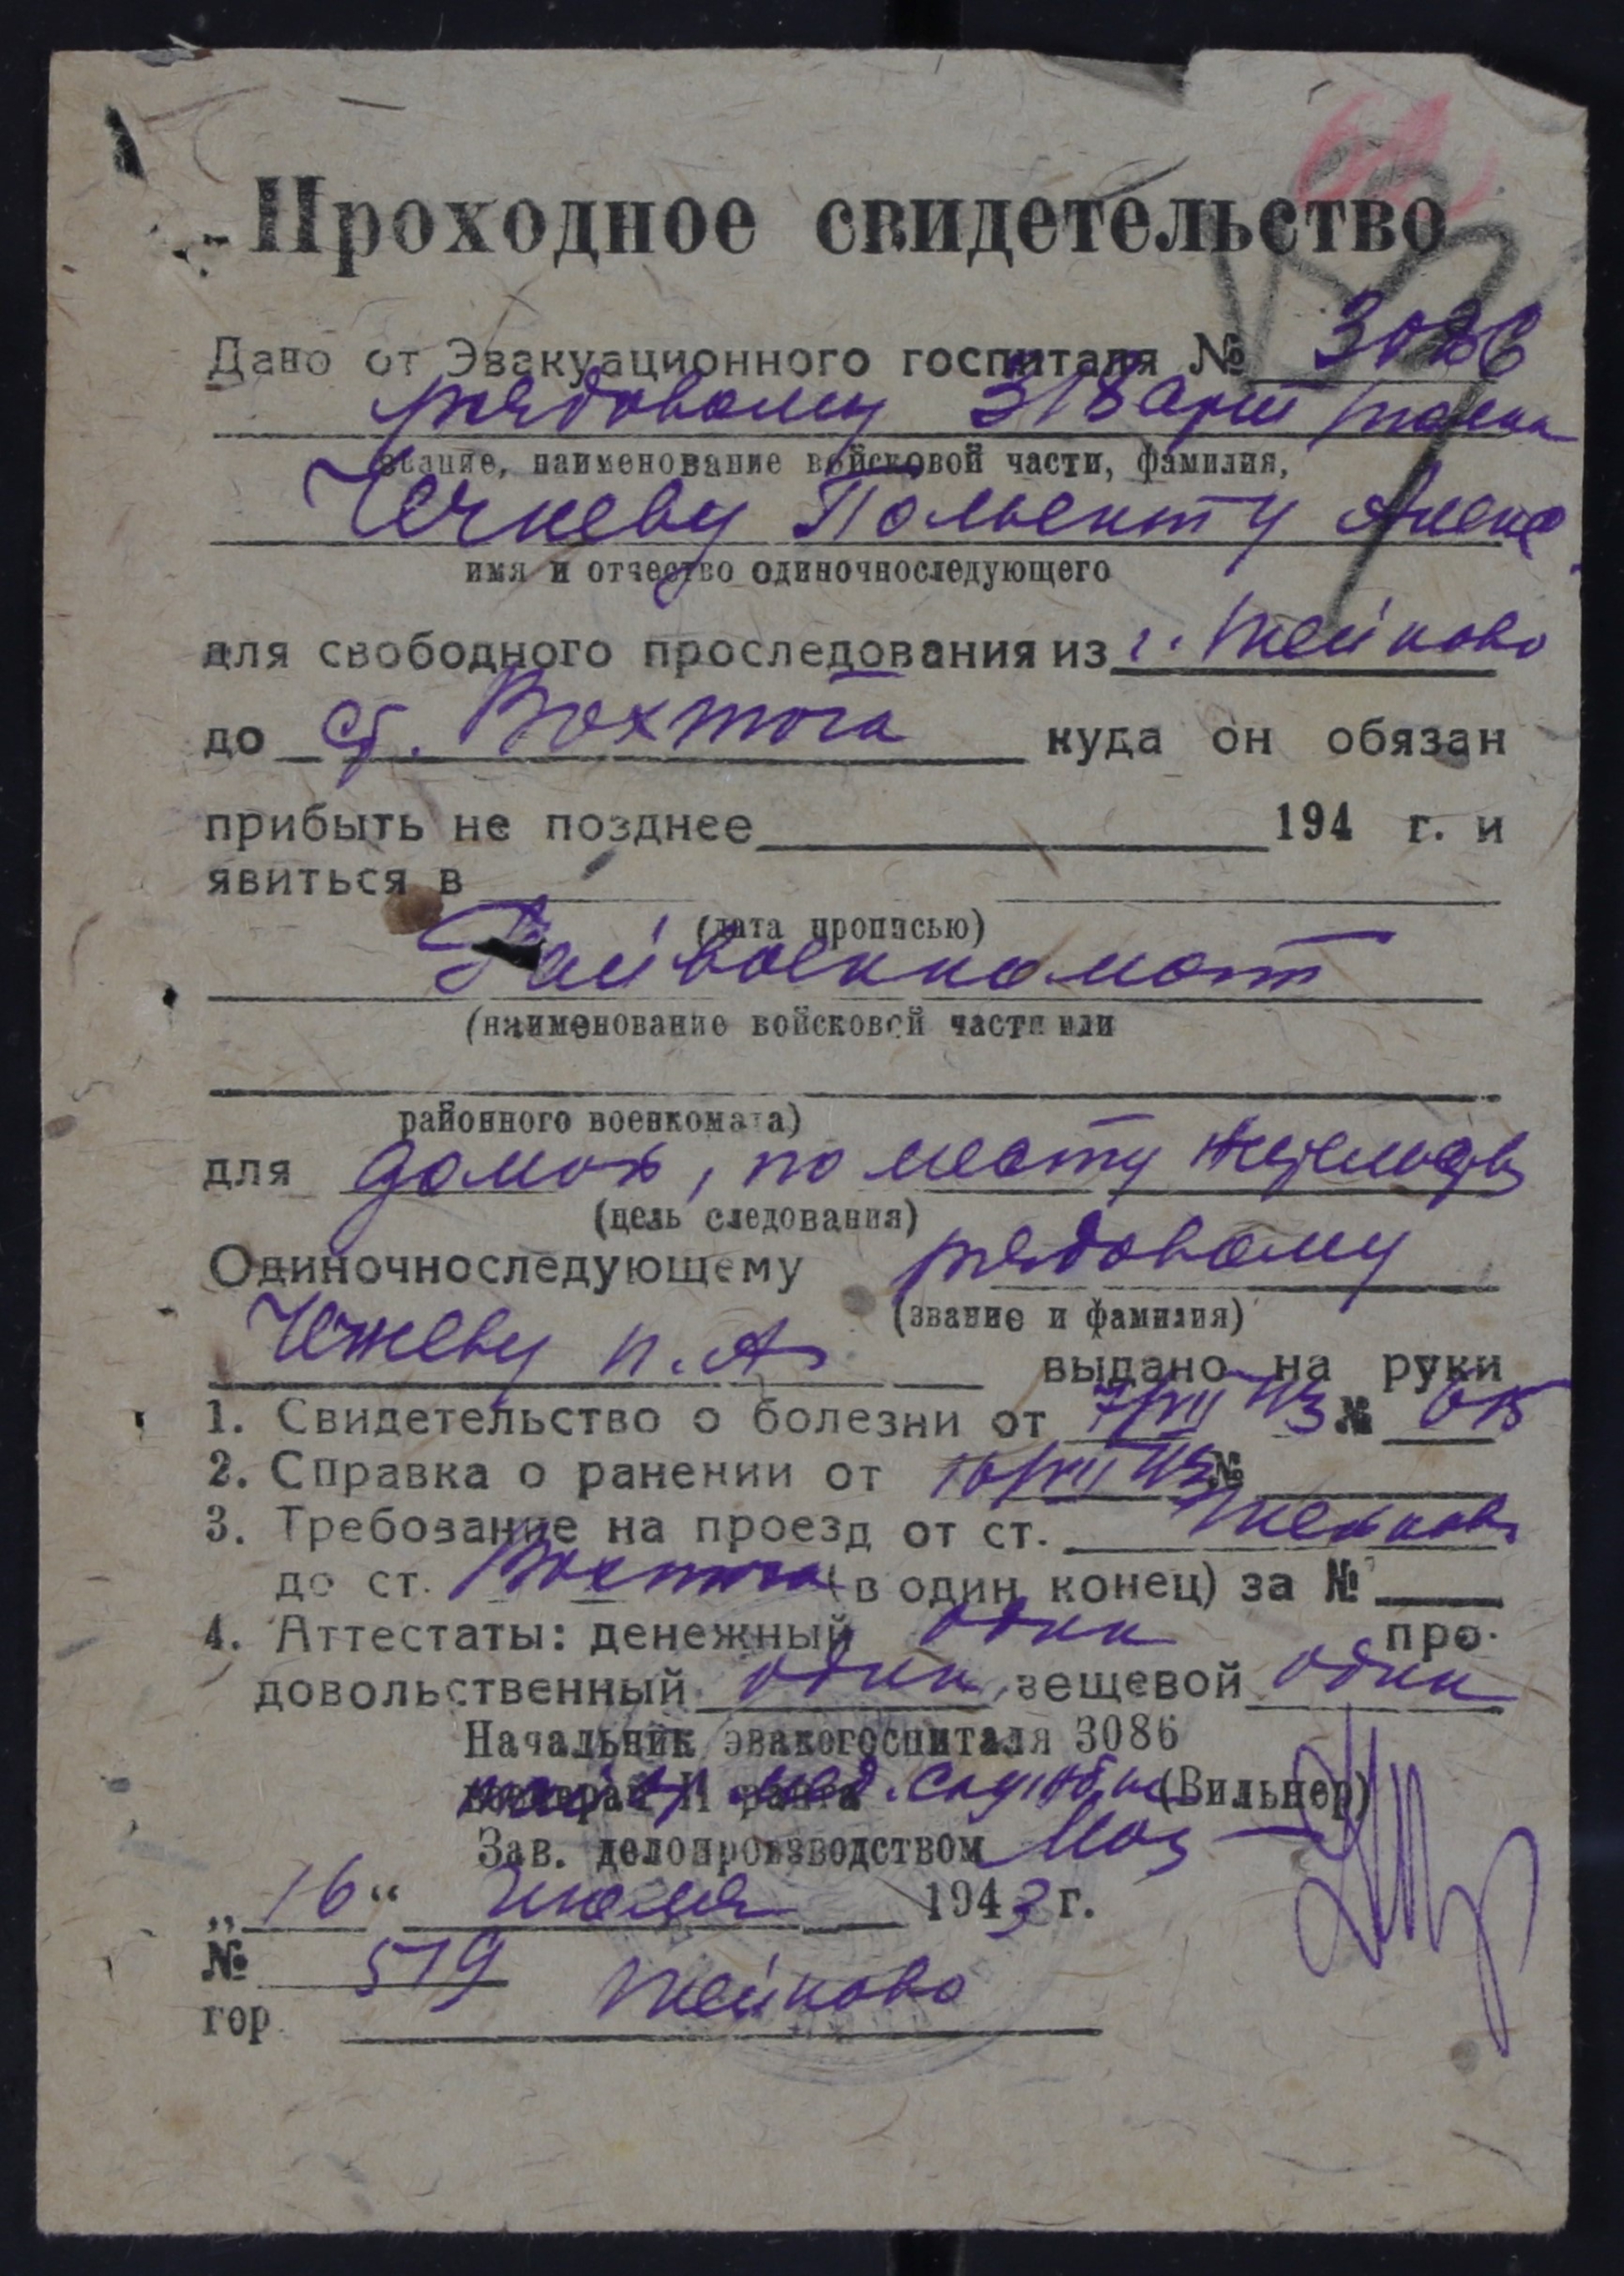 Проходное свидетельство
Дано от Эвакуационного госпиталя № 3086
рядовому 318 арт полка
звание, наименование войсковой части, фамилия,
Полиекту Алекс
имя и отчество одиночноследующего
для свободного проследования из г. Тейково
до ст. Вохтога куда он обязан
прибыть не позднее 194 г. и
явиться в
(дата прописью)
Райвоенкомат
(наименование войсковой части или
районного военкомата)
для домой, по месту
(цель следования)
Одиночноследующему рядовому
(звание и фамилия)
П. А. выдано на руки
1. Свидетельство о болезни от 7/VII 43 №
2. Справка о ранении от 16/VII 43 №
3. Требование на проезд от ст. Тейково
до ст. Вохтога (в один конец) за №
4. Аттестаты: денежный один про-
довольственный один, вещевой один
Начальник эвакогоспиталя 3086
мед. службы (Вильнер)
Зав. делопроизводством
„16“ июля 1943 г.
№ 519
гор Тейково